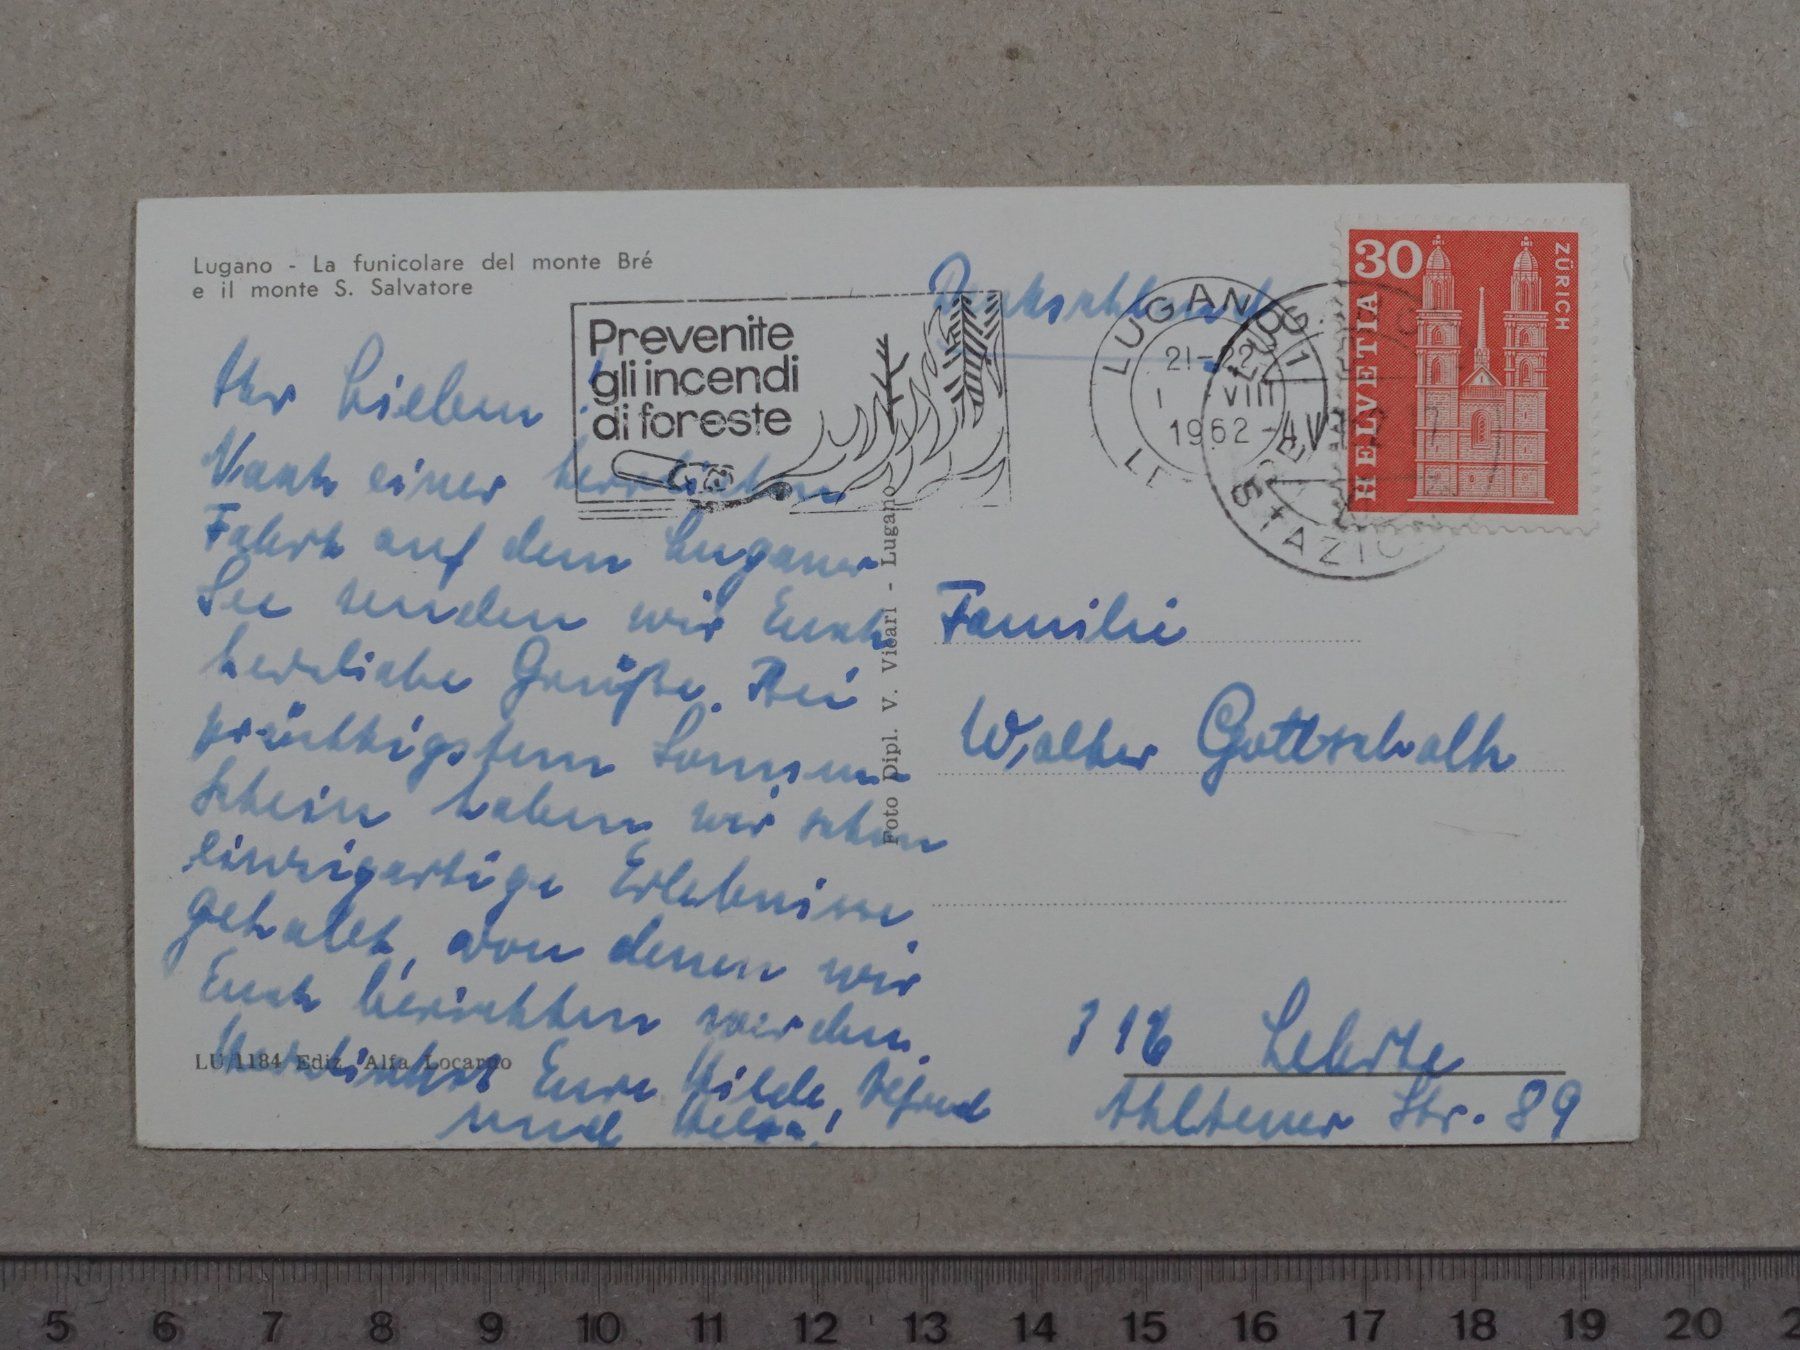 Lugano - La funicolare del monte Bré
e il monte S. Salvatore
Prevenite
gli incendi
di foreste
Deutschland
LUGANO 1
21-22
1 VIII
1962
STAZIO
30
HELVETIA
ZÜRICH
Ihr Lieben!
Nach einer herrlichen
Fahrt auf dem Luganer
See senden wir Euch
herzliche Grüße. Bei
prächtigstem Sonnen
Schein haben wir schon
einzigartige Erlebnisse
gehabt, von denen wir
Euch berichten werden.
Herzlichst Eure Hilde, Alfred
und Helga!
Foto Dipl. V. Vicari - Lugano
LU 1184 Ediz. Alfa Locarno
Familie
Walter Gottschalk
316 Lehrte
Ahltener Str. 89
5 6 7 8 9 10 11 12 13 14 15 16 17 18 19 20